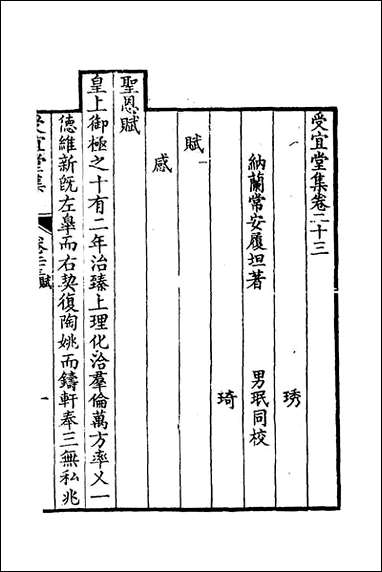 受宜堂集卷二十三
琇
納蘭常安履坦著 男珉同校
琦
賦
感
聖恩賦
皇上御極之十有二年治臻上理化洽羣倫萬方率乂一
德維新旣左皋而右契復陶姚而鑄軒奉三無私兆
受宜堂集 卷二十三 賦 一